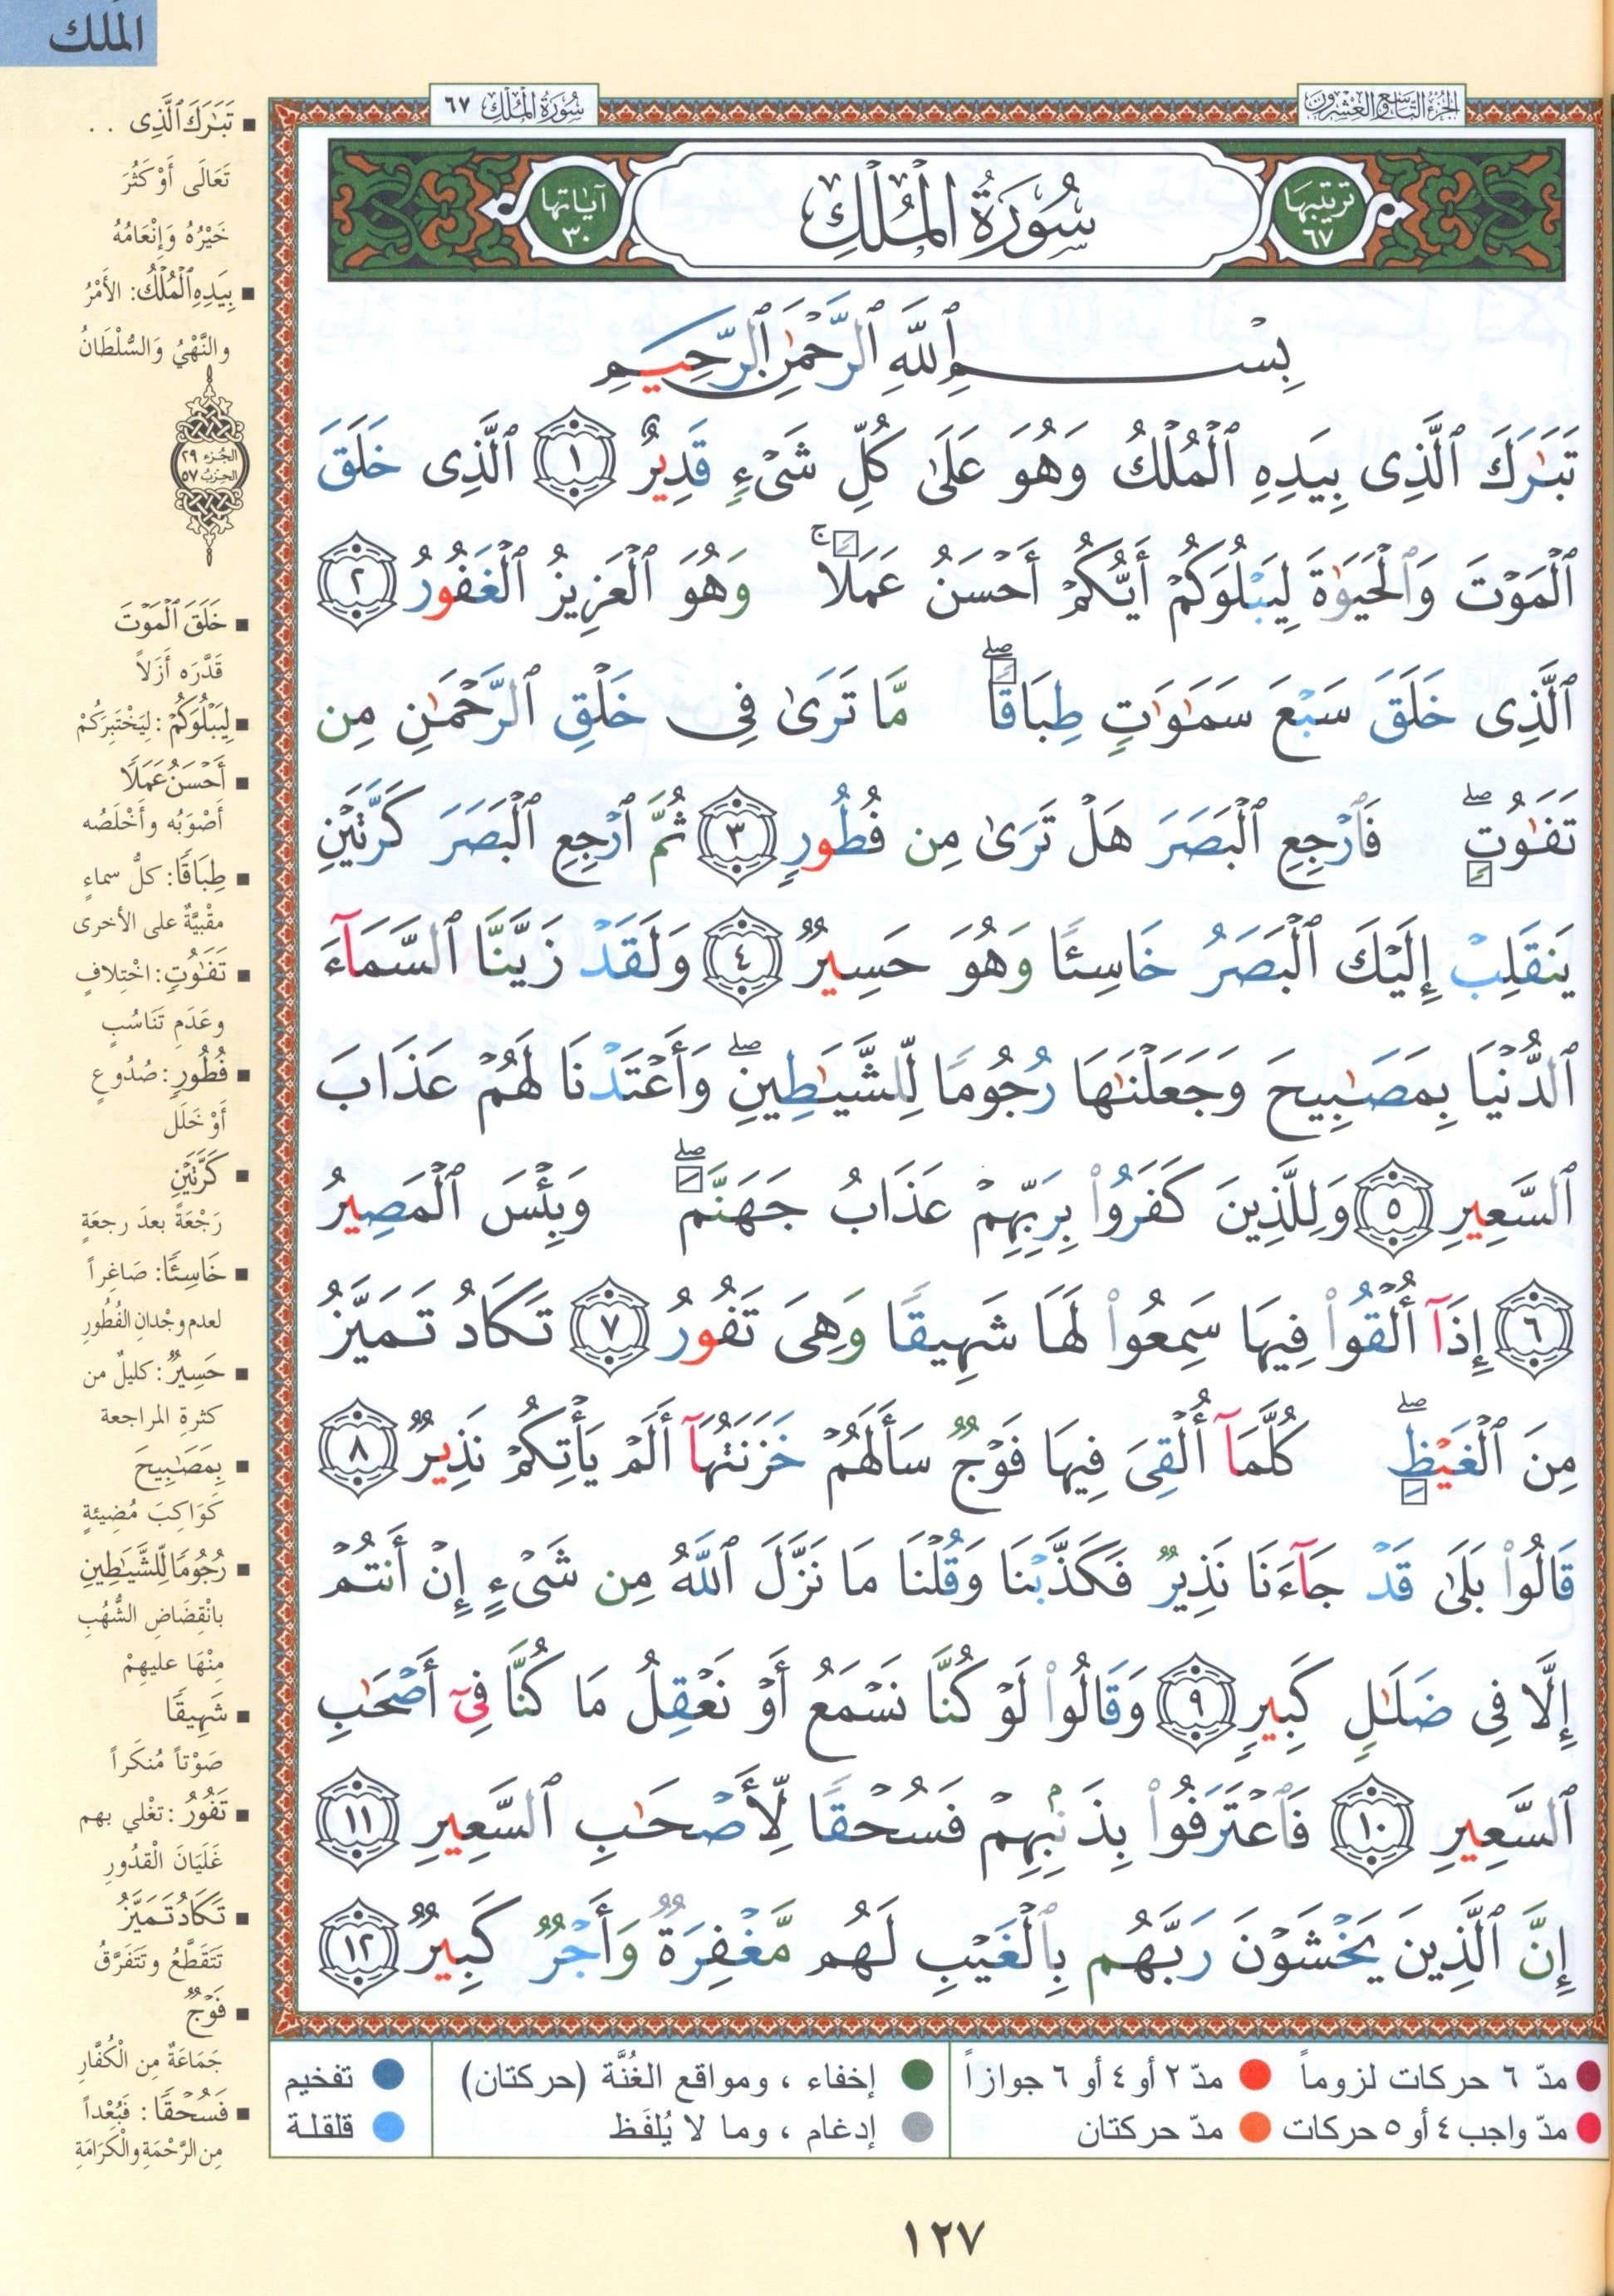 الملك
سُورَةُ الْمُلْكِ ٦٧
الجزء التاسع والعشرون
ترتيبها ٦٧
سُورَةُ الْمُلْكِ
آياتها ٣٠
بِسْمِ ٱللَّهِ ٱلرَّحْمَٰنِ ٱلرَّحِيمِ
تَبَٰرَكَ ٱلَّذِى بِيَدِهِ ٱلْمُلْكُ وَهُوَ عَلَىٰ كُلِّ شَىْءٍ قَدِيرٌ ١ ٱلَّذِى خَلَقَ
ٱلْمَوْتَ وَٱلْحَيَوٰةَ لِيَبْلُوَكُمْ أَيُّكُمْ أَحْسَنُ عَمَلًا ۚ وَهُوَ ٱلْعَزِيزُ ٱلْغَفُورُ ٢
ٱلَّذِى خَلَقَ سَبْعَ سَمَٰوَٰتٍ طِبَاقًا ۖ مَّا تَرَىٰ فِى خَلْقِ ٱلرَّحْمَٰنِ مِن
تَفَٰوُتٍ ۖ فَٱرْجِعِ ٱلْبَصَرَ هَلْ تَرَىٰ مِن فُطُورٍ ٣ ثُمَّ ٱرْجِعِ ٱلْبَصَرَ كَرَّتَيْنِ
يَنقَلِبْ إِلَيْكَ ٱلْبَصَرُ خَاسِئًا وَهُوَ حَسِيرٌ ٤ وَلَقَدْ زَيَّنَّا ٱلسَّمَآءَ
ٱلدُّنْيَا بِمَصَٰبِيحَ وَجَعَلْنَٰهَا رُجُومًا لِّلشَّيَٰطِينِ ۖ وَأَعْتَدْنَا لَهُمْ عَذَابَ
ٱلسَّعِيرِ ٥ وَلِلَّذِينَ كَفَرُوا۟ بِرَبِّهِمْ عَذَابُ جَهَنَّمَ ۖ وَبِئْسَ ٱلْمَصِيرُ
٦ إِذَآ أُلْقُوا۟ فِيهَا سَمِعُوا۟ لَهَا شَهِيقًا وَهِىَ تَفُورُ ٧ تَكَادُ تَمَيَّزُ
مِنَ ٱلْغَيْظِ ۖ كُلَّمَآ أُلْقِىَ فِيهَا فَوْجٌ سَأَلَهُمْ خَزَنَتُهَآ أَلَمْ يَأْتِكُمْ نَذِيرٌ ٨
قَالُوا۟ بَلَىٰ قَدْ جَآءَنَا نَذِيرٌ فَكَذَّبْنَا وَقُلْنَا مَا نَزَّلَ ٱللَّهُ مِن شَىْءٍ إِنْ أَنتُمْ
إِلَّا فِى ضَلَٰلٍ كَبِيرٍ ٩ وَقَالُوا۟ لَوْ كُنَّا نَسْمَعُ أَوْ نَعْقِلُ مَا كُنَّا فِىٓ أَصْحَٰبِ
ٱلسَّعِيرِ ١٠ فَٱعْتَرَفُوا۟ بِذَنۢبِهِمْ فَسُحْقًا لِّأَصْحَٰبِ ٱلسَّعِيرِ ١١
إِنَّ ٱلَّذِينَ يَخْشَوْنَ رَبَّهُم بِٱلْغَيْبِ لَهُم مَّغْفِرَةٌ وَأَجْرٌ كَبِيرٌ ١٢
تَبَٰرَكَ ٱلَّذِى . .
تَعَالَى أَوْ كَثُرَ
خَيْرُهُ وَإِنْعَامُهُ
بِيَدِهِ ٱلْمُلْكُ: الأَمْرُ
والنَّهْيُ وَالسُّلْطَانُ
الجزء ٢٩
الحزب ٥٧
خَلَقَ ٱلْمَوْتَ
قَدَّرَه أَزَلاً
لِيَبْلُوَكُمْ: لِيَخْتَبِرَكُمْ
أَحْسَنُ عَمَلًا
أَصْوَبُه وأَخْلَصُه
طِبَاقًا: كلُّ سماءٍ
مقْبيَّةٌ على الأخرى
تَفَٰوُتٍ: اخْتِلافٍ
وعَدَمِ تَنَاسُبٍ
فُطُورٍ: صُدُوعٍ
أَوْ خَلَل
كَرَّتَيْنِ
رَجْعَةً بعدَ رجعَةٍ
خَاسِئًا: صَاغِراً
لعدم وجْدانِ الفُطُورِ
حَسِيرٌ: كليلٌ من
كثرةِ المراجعة
بِمَصَٰبِيحَ
كَوَاكِبَ مُضِيئةٍ
رُجُومًا لِّلشَّيَٰطِينِ
بانْقِضَاضِ الشُّهُبِ
مِنْهَا عليهِمْ
شَهِيقًا
صَوْتاً مُنكَراً
تَفُورُ: تغْلي بهم
غَلَيَانَ الْقدُورِ
تَكَادُ تَمَيَّزُ
تَتَقَطَّعُ وتَتَفَرَّقُ
فَوْجٌ
جَمَاعَةٌ مِن الْكُفَّارِ
فَسُحْقًا: فَبُعْداً
مِن الرَّحْمَةِ والْكَرَامَةِ
مدّ ٦ حركات لزوماً
مدّ ٢ أو ٤ أو ٦ جوازاً
إخفاء ، ومواقع الغُنَّة (حركتان)
تفخيم
مدّ واجب ٤ أو ٥ حركات
مدّ حركتان
إدغام ، وما لا يُلفَظ
قلقلة
١٢٧